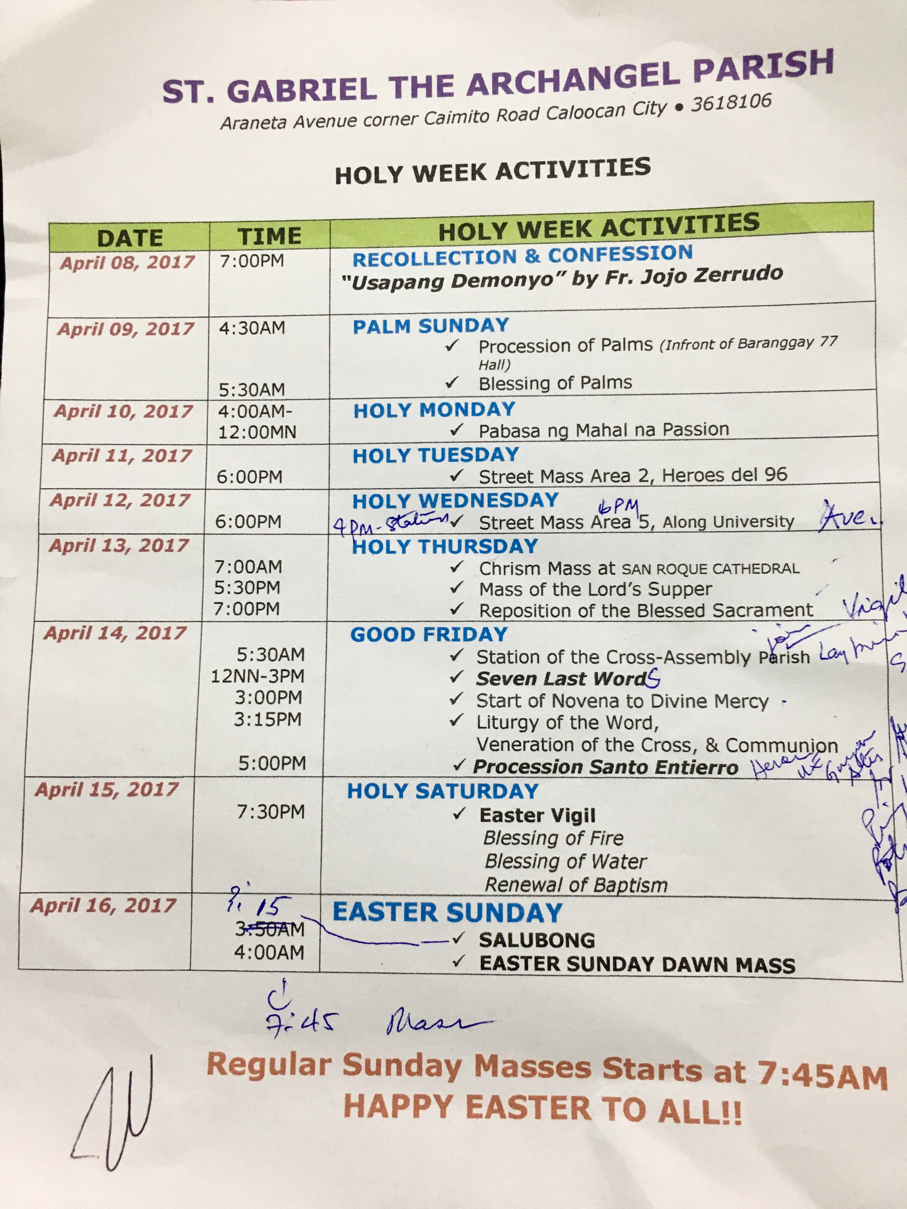 ST. GABRIEL THE ARCHANGEL PARISH
Araneta Avenue corner Caimito Road Caloocan City • 3618106
HOLY WEEK ACTIVITIES
DATE TIME HOLY WEEK ACTIVITIES
April 08, 2017 7:00PM RECOLLECTION & CONFESSION
"Usapang Demonyo" by Fr. Jojo Zerrudo
April 09, 2017 4:30AM PALM SUNDAY
✓ Procession of Palms (Infront of Baranggay 77
Hall)
5:30AM ✓ Blessing of Palms
April 10, 2017 4:00AM- HOLY MONDAY
12:00MN ✓ Pabasa ng Mahal na Passion
April 11, 2017 HOLY TUESDAY
6:00PM ✓ Street Mass Area 2, Heroes del 96
April 12, 2017 HOLY WEDNESDAY
6PM
6:00PM 4PM-Station ✓ Street Mass Area 5, Along University Ave.
April 13, 2017 HOLY THURSDAY
7:00AM ✓ Chrism Mass at SAN ROQUE CATHEDRAL
5:30PM ✓ Mass of the Lord's Supper
7:00PM ✓ Reposition of the Blessed Sacrament Vigil
April 14, 2017 GOOD FRIDAY
5:30AM ✓ Station of the Cross-Assembly Parish Lay
12NN-3PM ✓ Seven Last WordS
3:00PM ✓ Start of Novena to Divine Mercy
3:15PM ✓ Liturgy of the Word,
Veneration of the Cross, & Communion
5:00PM ✓ Procession Santo Entierro
April 15, 2017 HOLY SATURDAY
7:30PM ✓ Easter Vigil
Blessing of Fire
Blessing of Water
Renewal of Baptism
April 16, 2017 15 EASTER SUNDAY
3:50AM ✓ SALUBONG
4:00AM ✓ EASTER SUNDAY DAWN MASS
7:45 Mass
Regular Sunday Masses Starts at 7:45AM
HAPPY EASTER TO ALL!!